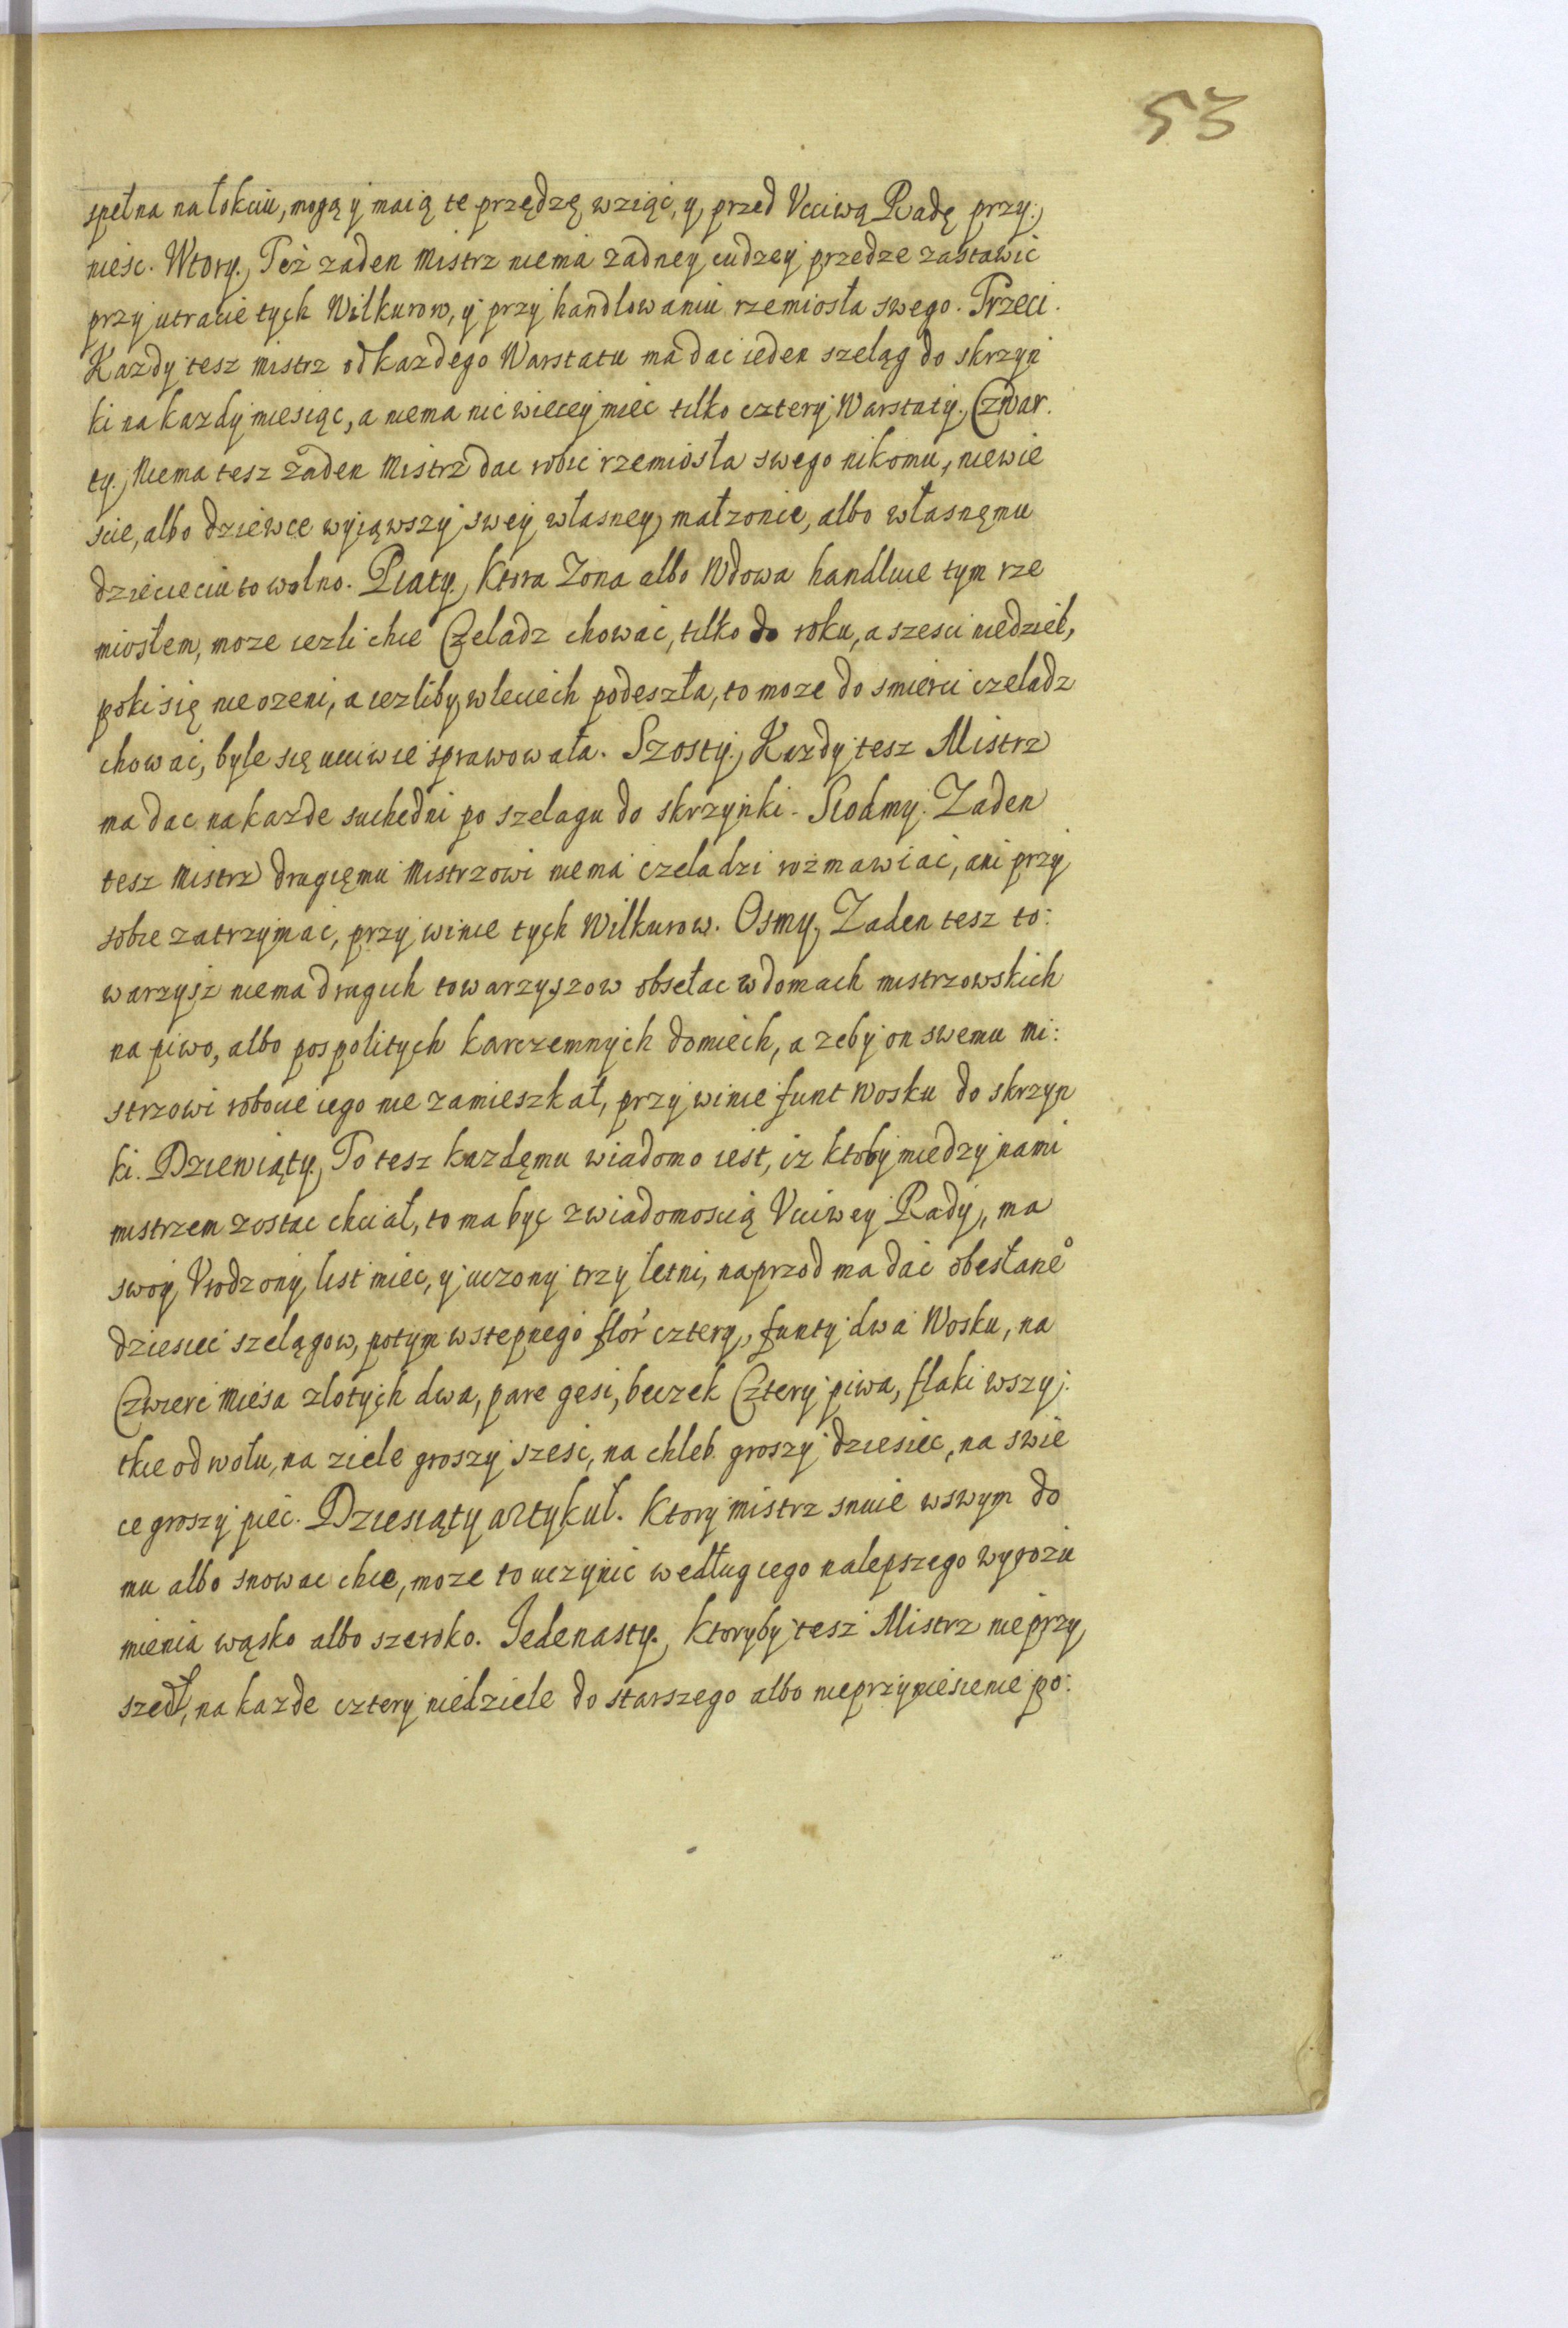 53
spełna na łokciu, mogą y maią te przędzę wziąć, y przed Vcciwą Radę przy:
niesc. Wtory. Też zaden Mistrz niema zadney cudzey przedze zastawić
przy utracie tych Wilkurow, y przy handlowaniu rzemiosła swego. Trzeci.
Kazdy tesz mistrz od kazdego Warstatu ma dac ieden szeląg do skrzyn
ki na kazdy miesiąc, a niema nic wiecey mieć tilko cztery Warstaty. Czwar.
ty. Niema tesz żaden Mistrz dac robic rzemiosła swego nikomu, niewie
scie, albo dziewce wyjąwszy swey własney małzonie, albo własnęmu
dziecieciu to wolno. Piaty. Ktora Zona albo Wdowa handluie tym rze
miosłem, moze iezli chce Czeladz chować, tilko do roku, a szesci niedziel,
poki się nie ozeni, a iezliby w leciech podeszła, to moze do smierci czeladz
chować, byle się ucciwie sprawowała. Szosty. Kazdy tesz Mistrz
ma dac na kazde suchedni po szelagu do skrzynki. Siodmy. Zaden
tesz Mistrz drugięmu Mistrzowi niema czeladzi rozmawiać, ani przy
sobie zatrzymać, przy winie tych Wilkurow. Osmy. Zaden tesz to:
warzysz niema drugich towarzyszow obsełac w domach mistrzowskich
na piwo, albo pospolitych karczemnych domiech, a zeby on swemu Mi:
strzowi robocie iego nie zamieszkał, przy winie funt Wosku do skrzyn
ki. Dziewiąty. To tesz kazdęmu wiadomo iest, iz ktoby miedzy nami
mistrzem zostac chciał, to ma być z wiadomoscią Vcciwey Rady, ma
swoy Vrodzony list miec, y uczony trzy letni, naprzod ma dać obesłane°
dziesieć szelągow, potym wstepnego flor cztery, funty dwa Wosku, na
Czwierć Miesa złotych dwa, pare gesi, beczek Cztery piwa, flaki wszy:
tkie od wołu, na ziele groszy szesc, na chleb groszy dziesiec, na swie
ce groszy piec. Dziesiąty artykuł. Ktory mistrz snuie w swym do
mu albo snowac chce, moze to uczynic według iego nalepszego wyrozu
mienia wąsko albo szeroko. Iedenasty. Ktoryby tesz Mistrz nie przy
szedł, na kazde cztery niedziele do starszego albo nieprzyniesienie po: